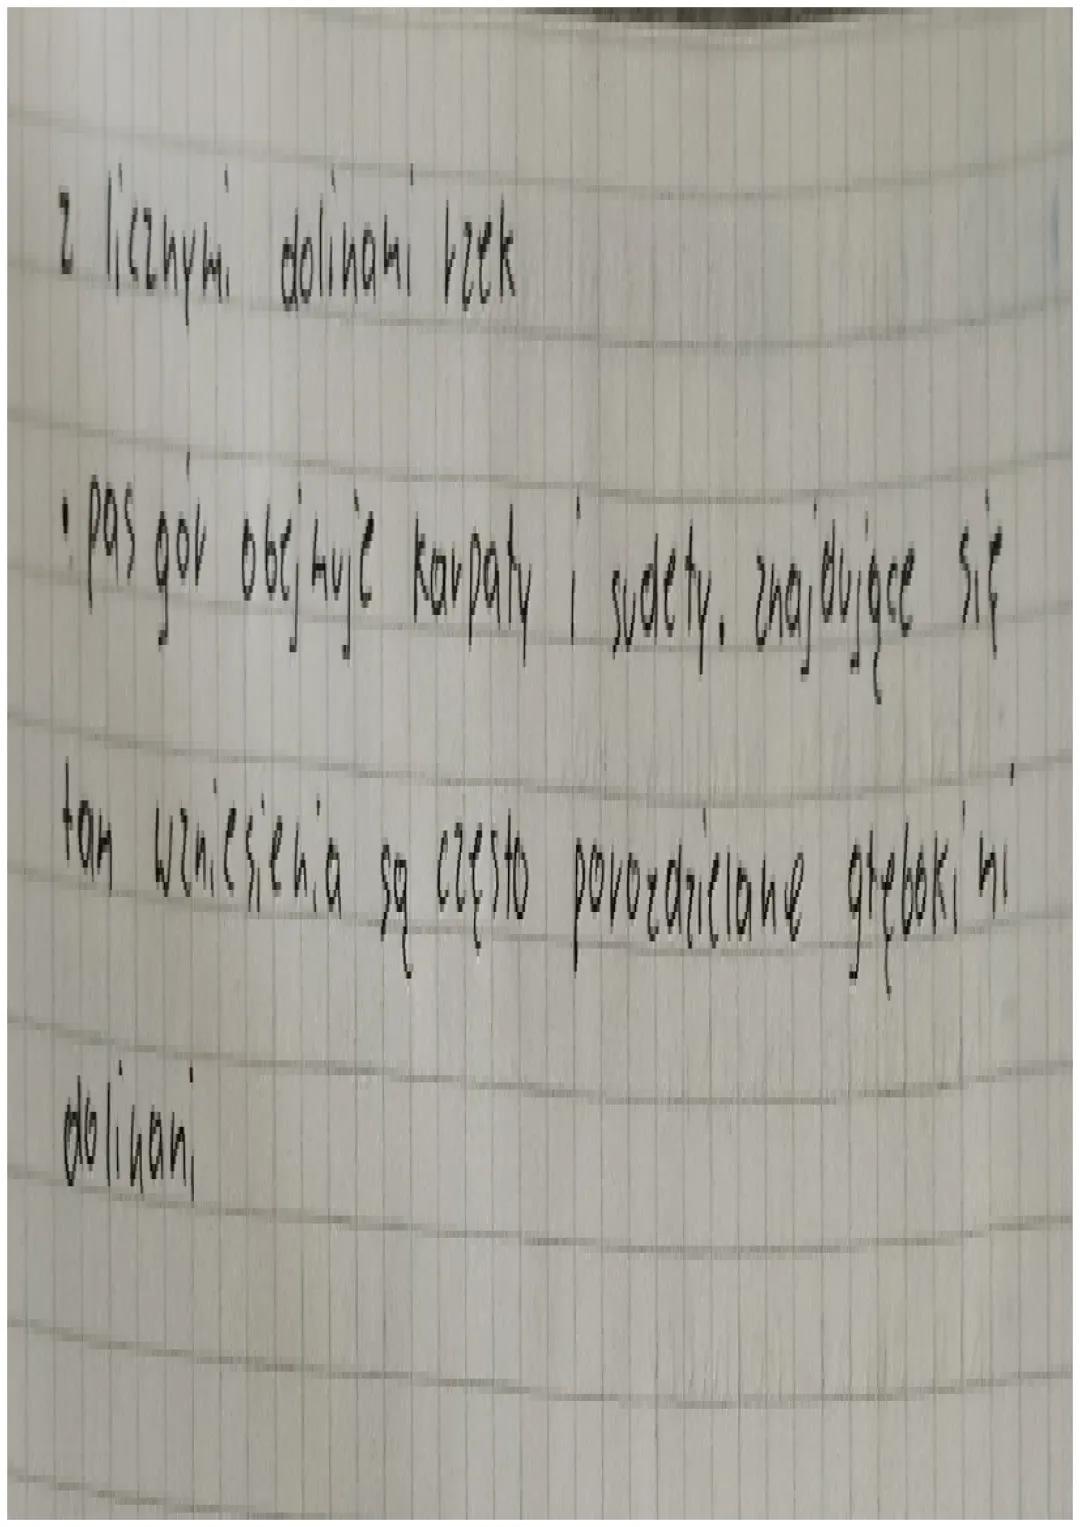 z licznymi dolinami rzek
• pas gór obejmuje karpaty i sudety. znajdujące się
tam wzniesienia są często porozdzielane głębokimi
dolinami